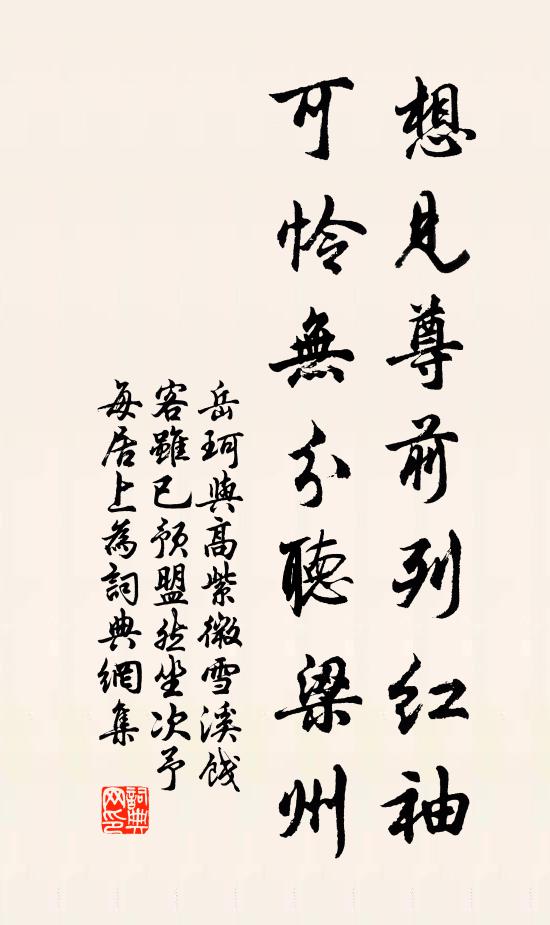 想見尊前列紅袖
可憐無分聽梁州
岳珂與高紫微雪溪餞
客雖已預盟然坐次予
每居上為詞典網集
詞典
网印